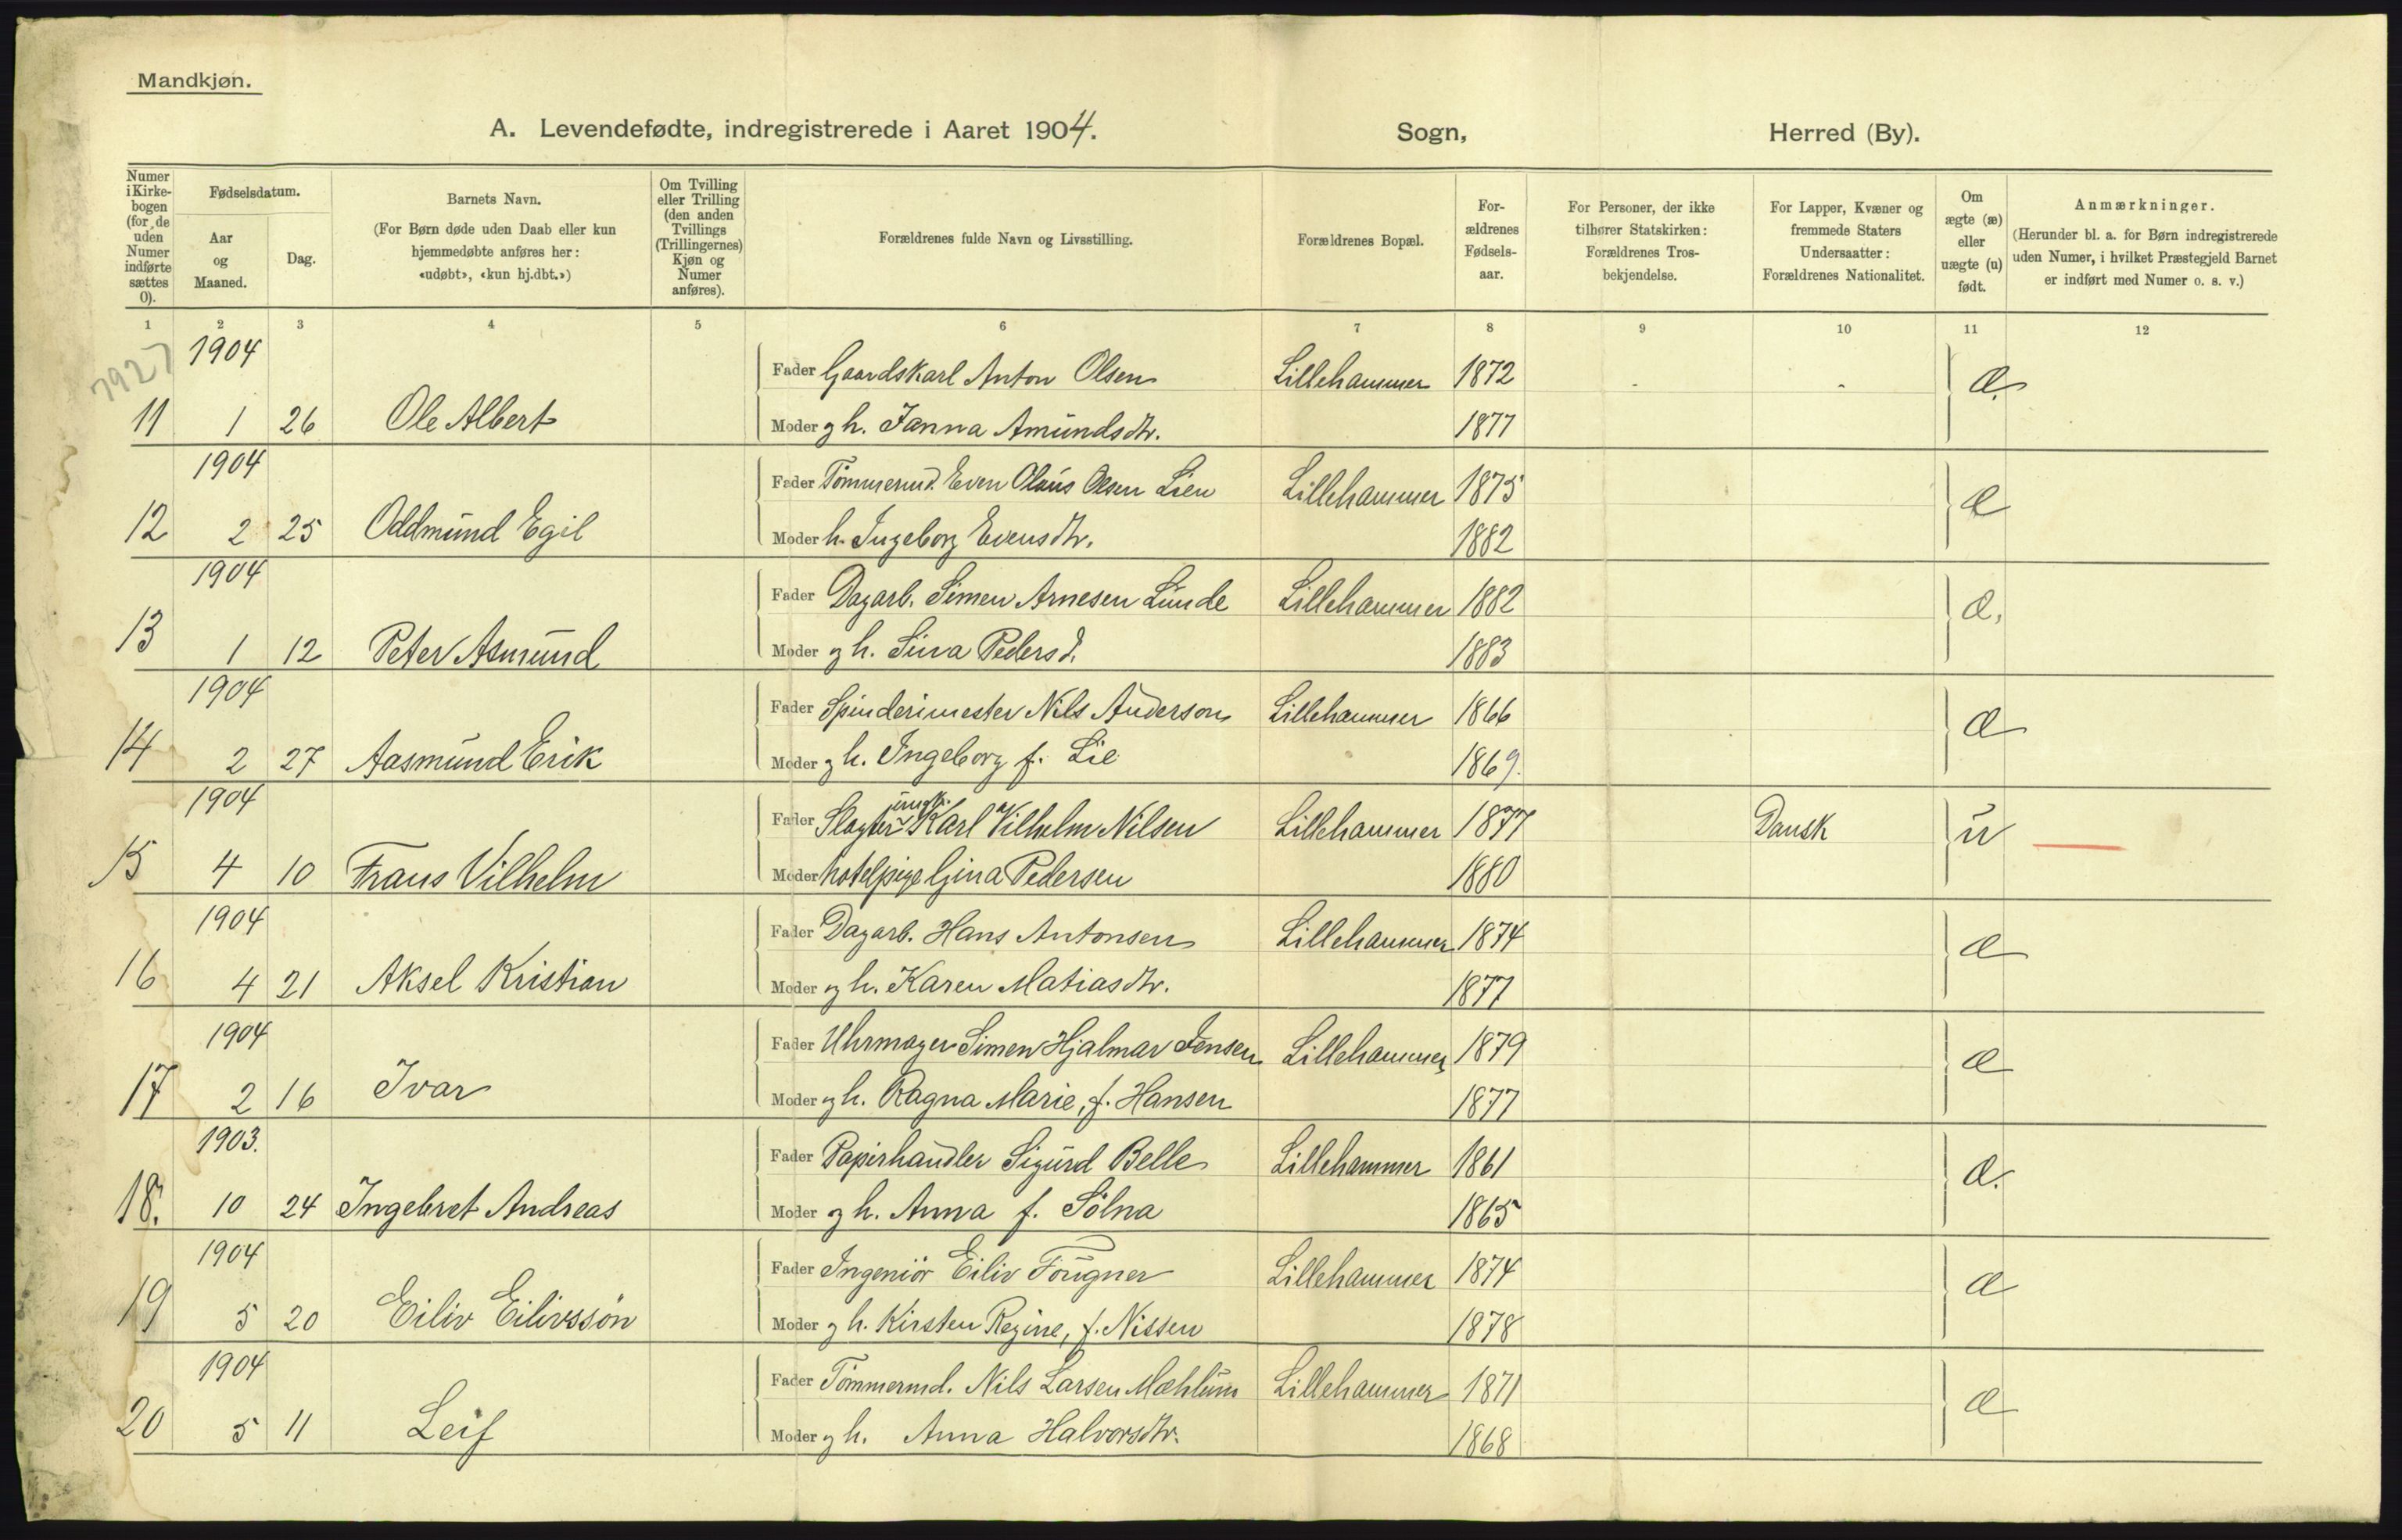 Mandkjøn.
A. Levendefødte, indregistrerede i Aaret 1904. Sogn, Herred (By).
Numer i Kirkebogen (for de uden Numer indførte sættes 0).
Fødselsdatum.
Aar og Maaned.
Dag.
Barnets Navn.
(For Børn døde uden Daab eller kun hjemmedøbte anføres her: «udøbt», «kun hj.dbt.»)
Om Tvilling eller Trilling (den anden Tvillings (Trillingernes) Kjøn og Numer anføres).
Forældrenes fulde Navn og Livsstilling.
Forældrenes Bopæl.
Forældrenes Fødselsaar.
For Personer, der ikke tilhører Statskirken: Forældrenes Trosbekjendelse.
For Lapper, Kvæner og fremmede Staters Undersaatter: Forældrenes Nationalitet.
Om ægte (æ) eller uægte (u) født.
Anmærkninger.
(Herunder bl. a. for Børn indregistrerede uden Numer, i hvilket Præstegjeld Barnet er indført med Numer o. s. v.)
1 2 3 4 5 6 7 8 9 10 11 12
7927
1904 Fader Gaardskarl Anton Olsen Lillehammer 1872 - - æ.
11 1 26 Ole Albert Moder og h. Janna Amundsdtr. 1877
1904 Fader Tømmermd. Even Olaus Olsen Lien Lillehammer 1875 æ
12 2 25 Oddmund Egil Moder h. Ingeborg Evensdtr. 1882
1904 Fader Dagarb. Simen Arnesen Lunde Lillehammer 1882 æ.
13 1 12 Peter Asmund Moder og h. Sina Pedersd. 1883
1904 Fader Spinderimester Nils Anderson Lillehammer 1866 æ
14 2 27 Aasmund Erik Moder og h. Ingeborg f. Lie 1869.
1904 Fader Slagter ungk. Karl Vilhelm Nilsen Lillehammer 1877 Dansk u
15 4 10 Frans Vilhelm Moder hotelpige Gina Pedersen 1880
1904 Fader Dagarb. Hans Antonsen Lillehammer 1874 æ
16 4 21 Aksel Kristian Moder og h. Karen Matiasdtr. 1877
1904 Fader Uhrmager Simen Hjalmar Jensen Lillehammer 1879 æ
17 2 16 Ivar Moder og h. Ragna Marie, f. Hansen 1877
1903. Fader Papirhandler Sigurd Belle Lillehammer 1861 æ.
18. 10 24 Ingebret Andreas Moder og h. Anna f. Sølna 1865
1904 Fader Ingeniør Eiliv Fougner Lillehammer 1874 æ
19 5 20 Eiliv Eilivssøn Moder og h. Kirsten Regine, f. Nissen 1878
1904 Fader Tømmermd. Nils Larsen Mæhlum Lillehammer 1871 æ
20 5 11 Leif Moder og h. Anna Halvorsdtr. 1868